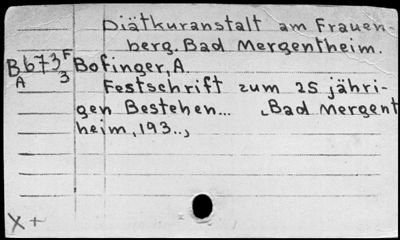 Diätkuranstalt am Frauen-
berg. Bad Mergentheim.
B673F Bofinger, A.
A 3 Festschrift zum 25 jähri-
gen Bestehen... [Bad Mergent
heim, 193..,
X+